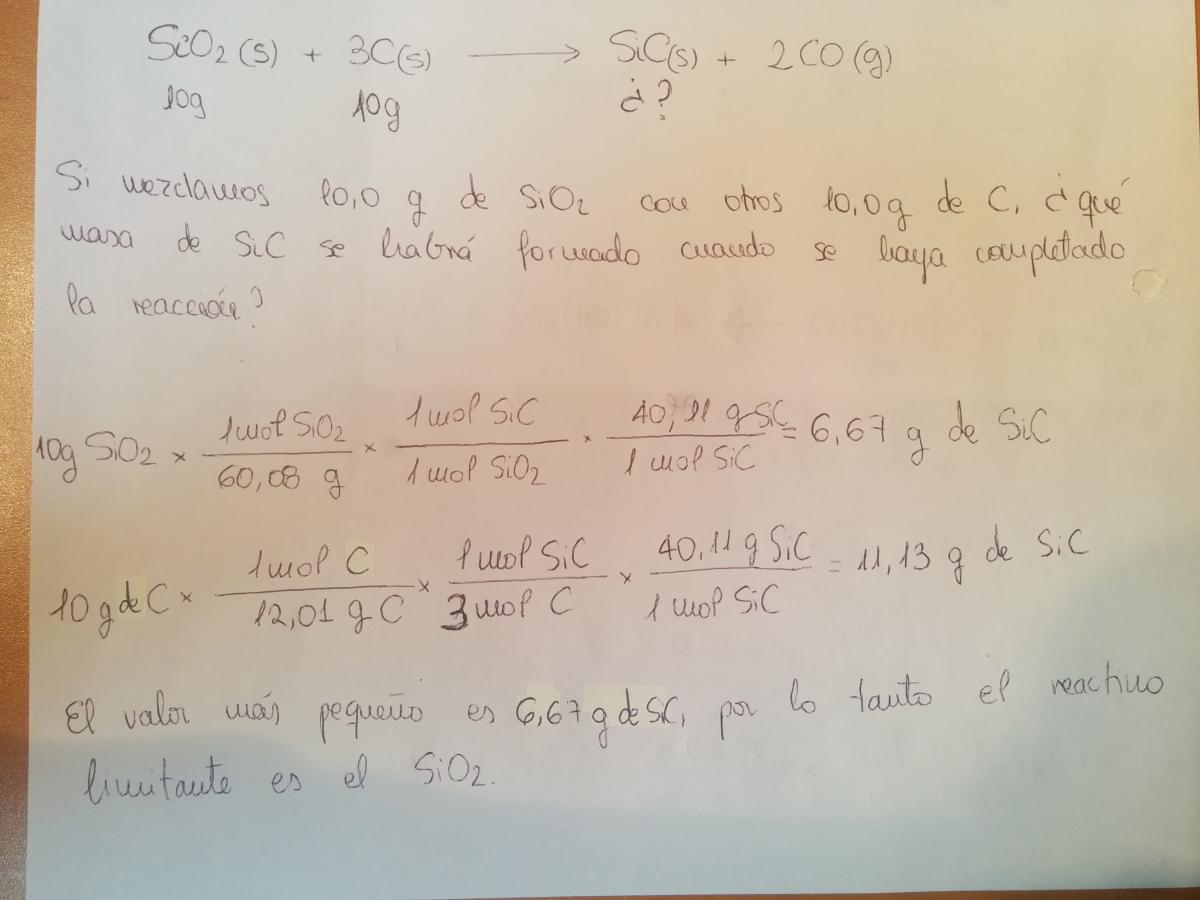 SiO2 (s) + 3C(s) ⟶ SiC(s) + 2CO (g)
10g 10g ¿?
Si mezclamos 10,0 g de SiO2 con otros 10,0g de C, ¿qué
masa de SiC se habrá formado cuando se haya completado
la reacción?
10g SiO2 × 1mol SiO2 / 60,08 g × 1mol SiC / 1mol SiO2 · 40,11 g SiC / 1 mol SiC = 6,67 g de SiC
10 g de C × 1mol C / 12,01 g C × 1mol SiC / 3 mol C × 40,11 g SiC / 1 mol SiC = 11,13 g de SiC
El valor más pequeño es 6,67 g de SiC, por lo tanto el reactivo
limitante es el SiO2.